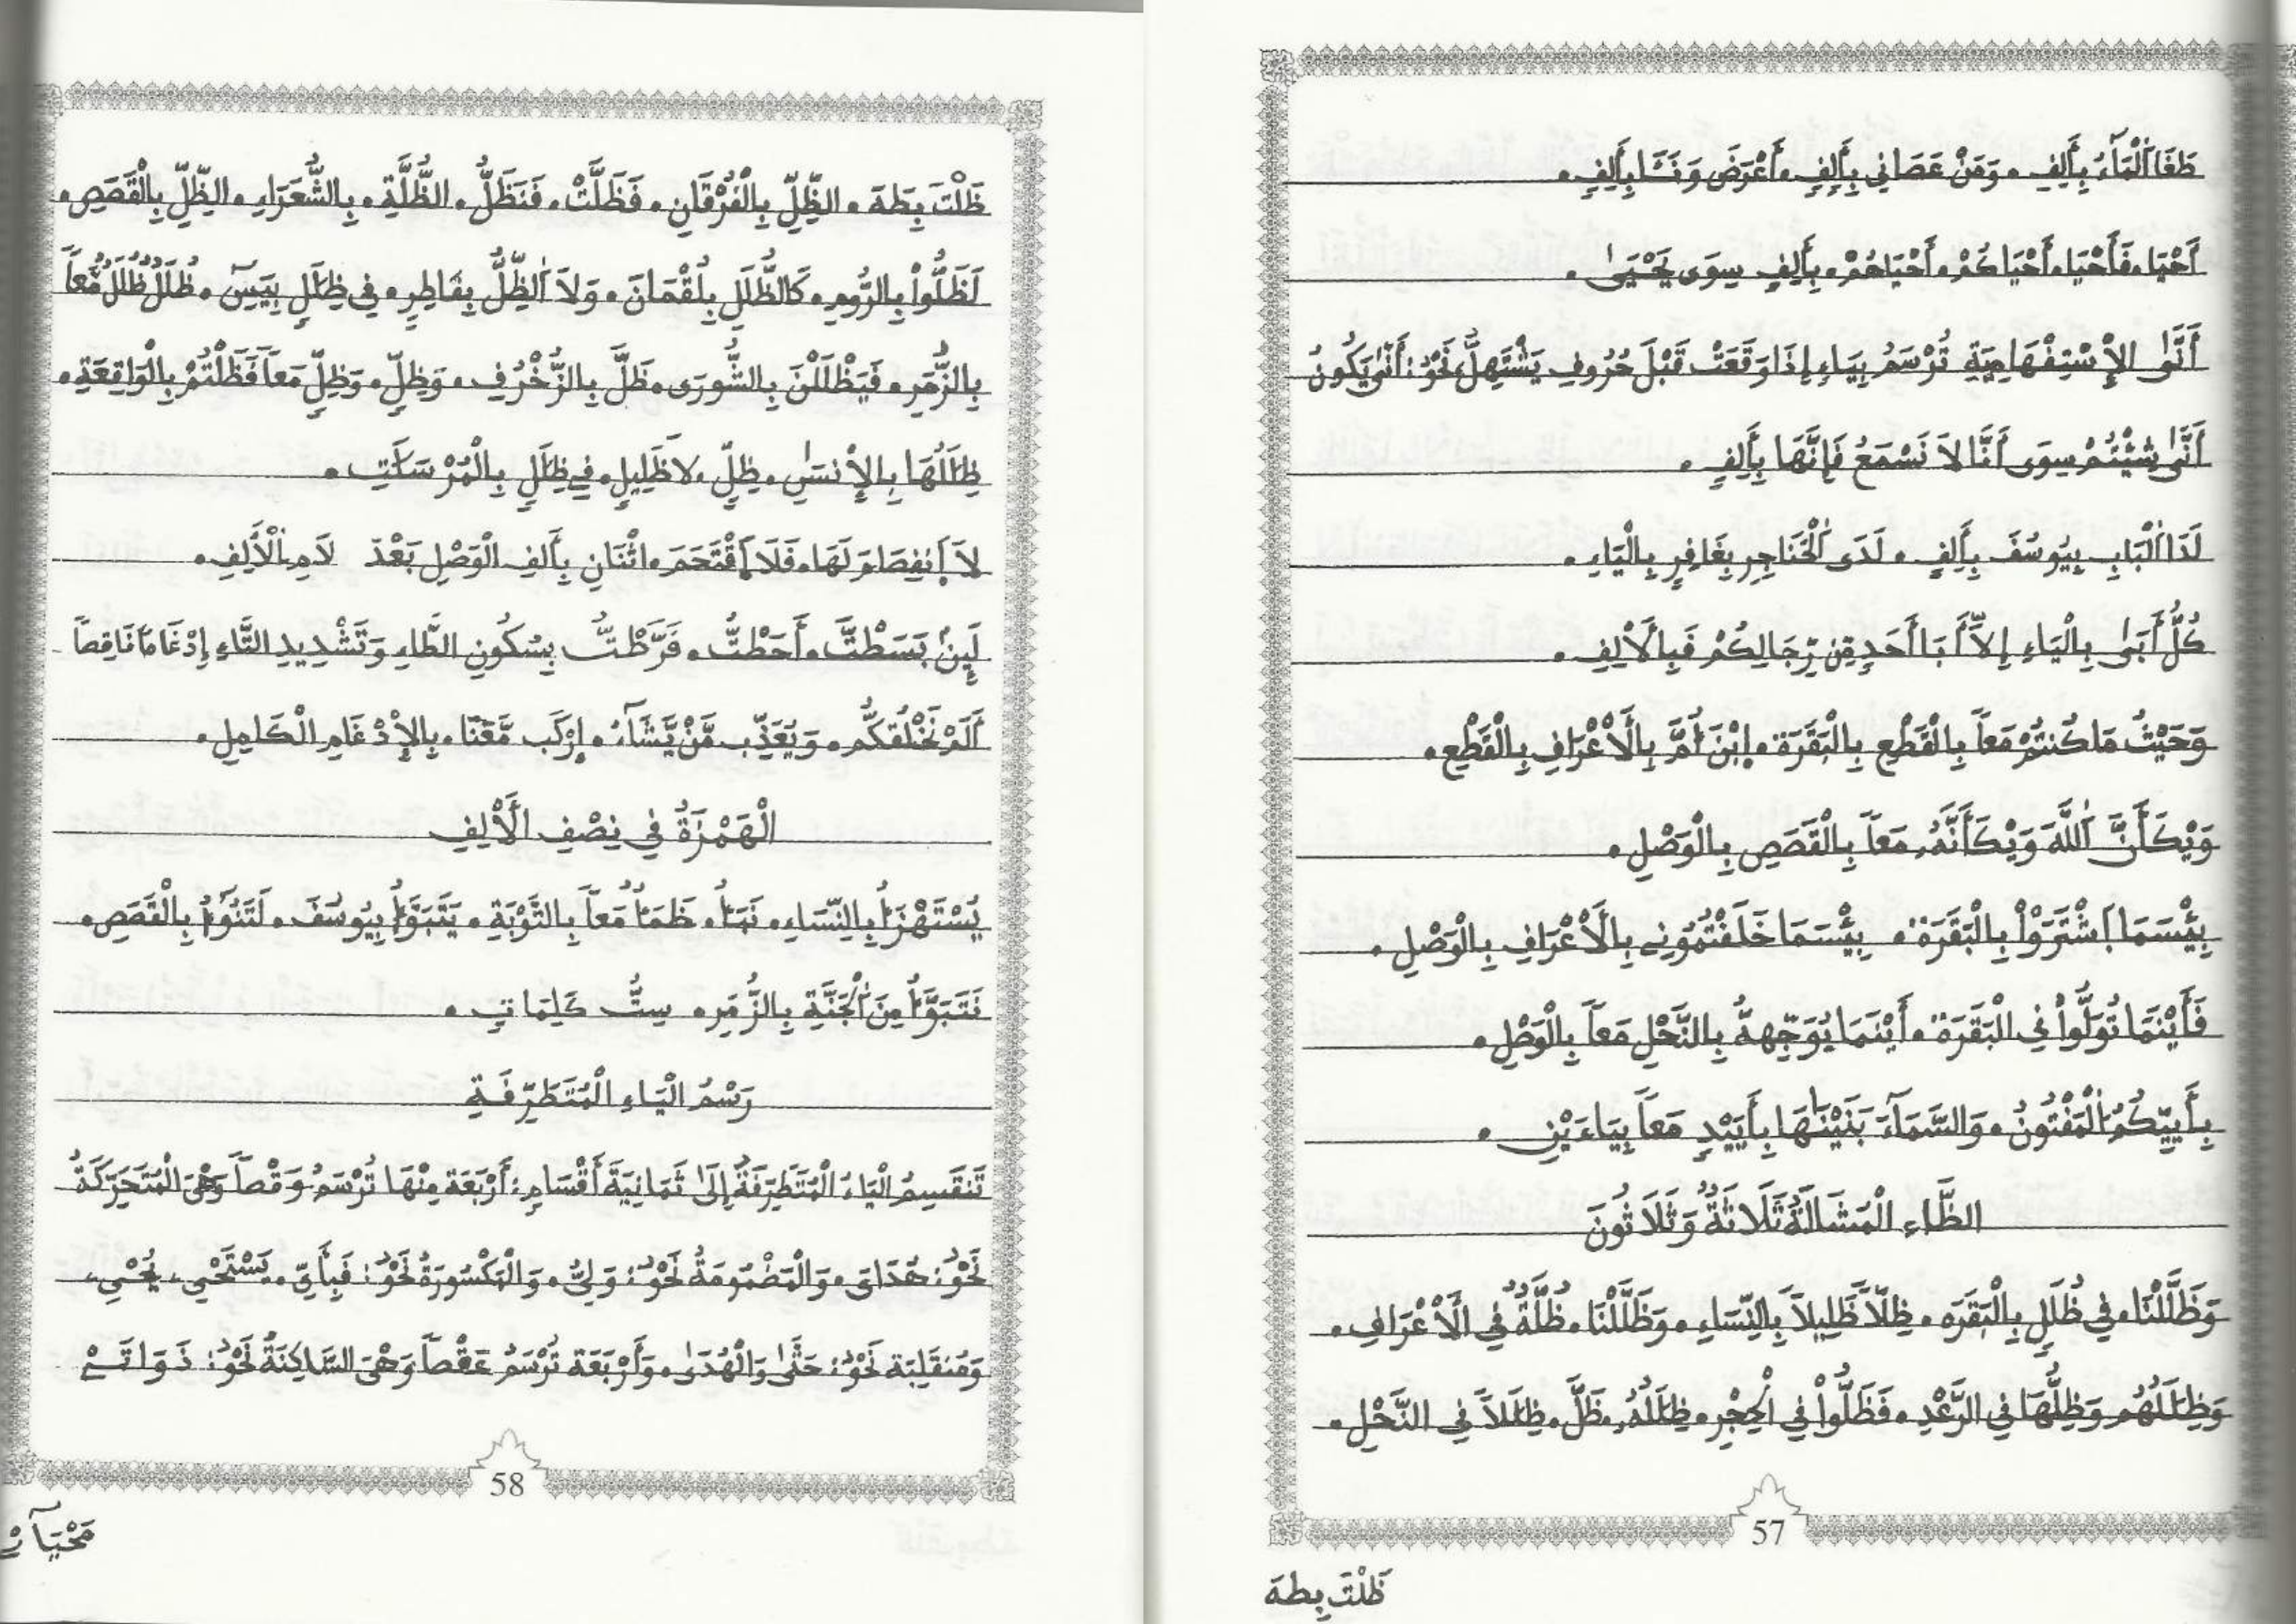 طَغَا اَلْمَآءُ بِأَلِفٍ • وَمَنْ عَصَانِي بِأَلِفٍ • أَعْرَضَ وَنَـَٔا بِأَلِفٍ •
أَحْيَا • فَأَحْيَا • أَحْيَاكُمْ • أَحْيَاهُمْ • بِأَلِفٍ سِوَى يَحْيَىٰ •
أَنَّىٰ الإِسْتِفْهَامِيَةِ تُرْسَمُ بِيَاءٍ إِذَا وَقَعَتْ قَبْلَ حُرُوفِ يَشْتَهِلُّ نَحْوُ: أَنَّىٰ يَكُونُ
أَنَّىٰ شِئْتُمْ سِوَى أَنَّا لاَ نَسْمَعُ فَإِنَّهَا بِأَلِفٍ •
لَدَا اَلْبَابِ بِيُوسُفَ بِأَلِفٍ • لَدَى اَلْحَنَاجِرِ بِغَافِرٍ بِالْيَاءِ •
كُلُّ أَبَىٰ بِالْيَاءِ إِلاَّ أَبَا أَحَدٍ مِّن رِّجَالِكُمْ فَبِالْأَلِفِ •
وَحَيْثُ مَا كُنتُمْ مَعاً بِالْقَطْعِ بِالْبَقَرَةِ • اِبْنَ أُمَّ بِالْأَعْرَافِ بِالْقَطْعِ •
وَيْكَأَنَّ اَللَّهَ وَيْكَأَنَّهُ مَعاً بِالْقَصَصِ بِالْوَصْلِ •
بِيْسَمَا اَشْتَرَوْاْ بِالْبَقَرَةِ • بِيْسَمَا خَلَفْتُمُونِے بِالْأَعْرَافِ بِالْوَصْلِ •
فَأَيْنَمَا تُوَلُّواْ فِي الْبَقَرَةِ • أَيْنَمَا يُوَجِّههُّ بِالنَّحْلِ مَعاً بِالْوَصْلِ •
بِأَييِّكُمُ اَلْمَفْتُونُ • وَالسَّمَآءَ بَنَيْنَٰهَا بِأَيَيْدٍ مَعاً بِيَاءَيْنِ •
الظَّاءِ الْمُشَالَةُ ثَلَاثَةٌ وَثَلَاثُونَ
وَظَلَّلْنَا • فِي ظُلَلٍ بِالْبَقَرَةِ • ظِلّاً ظَلِيلاً بِالنِّسَاءِ • وَظَلَّلْنَا • ظُلَّةٌ فِي الْأَعْرَافِ •
وَظِلَٰلُهُم وَظِلُّهَا فِي الرَّعْدِ • فَظَلُّواْ فِي الْحِجْرِ • ظِلَٰلُهُ • ظَلَّ • ظِلَٰلاً فِي النَّحْلِ •
57
ظَلْتَ بِطهَ
ظَلْتَ بِطَهَ • الظِّلَّ بِالْفُرْقَانِ • فَظَلَّتْ • فَنَظَلُّ • الظُّلَّةِ • بِالشُّعَرَاءِ • الظِّلِّ بِالْقَصَصِ •
لَظَلُّواْ بِالرُّومِ • كَالظُّلَلِ بِلُقْمَانَ • وَلاَ اَلظِّلُّ بِفَاطِرٍ • فِي ظِلَٰلٍ بِيَسَ • ظُلَلٌ ظُلَلٌ مَّعاً
بِالزُّمَرِ • فَيَظْلَلْنَ بِالشُّورَى • ظَلَّ بِالزُّخْرُفِ • وَظِلٍّ • وَظِلٍّ مَعاً فَظَلْتُمْ بِالْوَاقِعَةِ •
ظِلَٰلُهَا بِالإِنسَٰنِ • ظِلٍّ • لاَ ظَلِيلٍ • فِي ظِلَٰلٍ بِالْمُرْسَلَٰتِ •
لاَ اَنفِصَامَ لَهَا • فَلَا اَقْتَحَمَ • اثْنَانِ بِأَلِفِ الْوَصْلِ بَعْدَ لاَمِ الْأَلِفِ •
لَئِنْ بَسَطْتَّ • أَحَطْتُّ • فَرَّطْتُّ بِسُكُونِ الطَّاءِ وَتَشْدِيدِ التَّاءِ إِدْغَاماً نَاقِصاً
أَلَمْ نَخْلُقكُّم • وَيُعَذِّب مَّنْ يَّشَآءُ • اِرْكَب مَّعَنَا • بِالإِدْغَامِ الْكَامِلِ •
الْهَمْزَةُ فِي نِصْفِ الْأَلِفِ
يُسْتَهْزَأُ بِالنِّسَاءِ • نَبَأُ • ظَمَأٌ مَعاً بِالتَّوْبَةِ • يَتَبَوَّأُ بِيُوسُفَ • لَتَنُوأُ بِالْقَصَصِ •
نَتَبَوَّأُ مِنَ اَلْجَنَّةِ بِالزُّمَرِ • سِتُّ كَلِمَاتٍ •
رَسْمُ الْيَاءِ الْمُتَطَرِّفَةِ
تَنقَسِمُ الْيَاءُ الْمُتَطَرِّفَةُ إِلَىٰ ثَمَانِيَةَ أَقْسَامٍ: أَرْبَعَة مِنْهَا تُرْسَمُ وَقْصاً وَهْىَ الْمُتَحَرِّكَةُ
نَحْوُ: هُدَاىَ • وَالْمَضْمُومَةُ نَحْوُ: وَلِىُّ • وَالْمَكْسُورَةُ نَحْوُ: فَبِأَىِّ • يَسْتَحْىِ • يُحْىِ •
وَمُنقَلِبَة نَحْوُ: حَتَّىٰ وَالْهُدَىٰ • وَأَرْبَعَة تُرْسَمُ عَقْصاً وَهْىَ السَّاكِنَةُ نَحْوُ: ذَوَاتَےْ
58